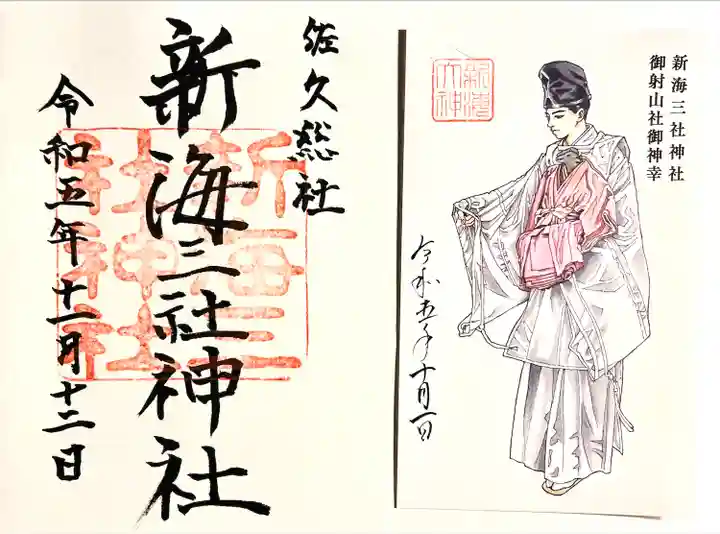 佐久総社
新海三社神社
令和五年十一月十二日
新海三社神社
御射山社御神幸
令和五年十月一日